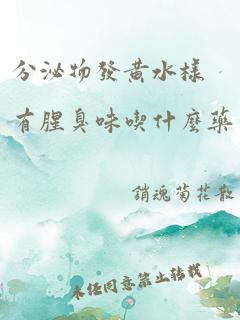 分泌物發黃水樣
有腥臭味喫什麼藥
銷魂菊花散
未经同意禁止转载